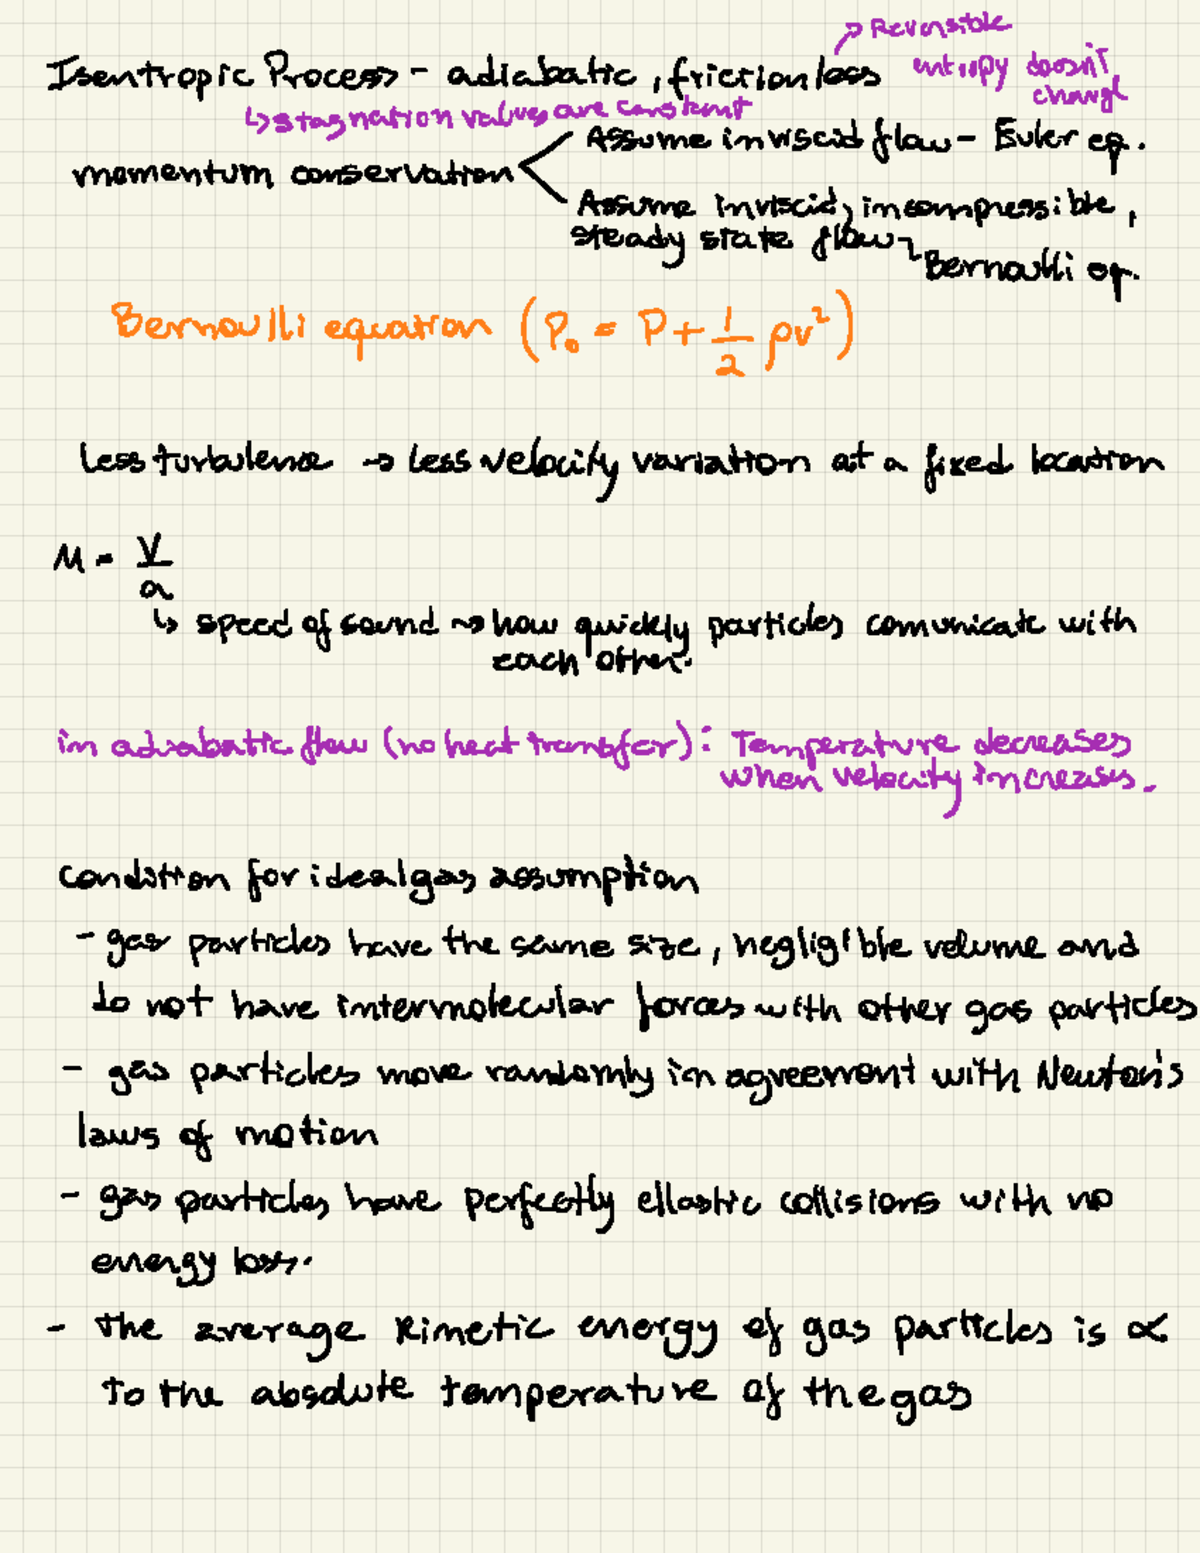 ↗ Reversible
Isentropic Process - adiabatic, frictionless entropy doesn't change
↳ stagnation values are constant
Assume inviscid flow - Euler eq.
momentum conservation
Assume inviscid, incompressible,
steady state flow
Bernoulli eq.
Bernoulli equation (P₀ = P + 1/2 ρv²)
Less turbulence → less velocity variation at a fixed location
M = V/a
↳ speed of sound → how quickly particles comunicate with
each other.
in adiabatic flow (no heat transfer): Temperature decreases
when velocity increases.
Condition for ideal gas assumption
- gas particles have the same size, negligible volume and
do not have intermolecular forces with other gas particles
- gas particles move randomly in agreement with Newton's
laws of motion
- gas particles have perfectly ellastic collisions with no
energy loss.
- the average kinetic energy of gas particles is ∝
to the absolute temperature of the gas